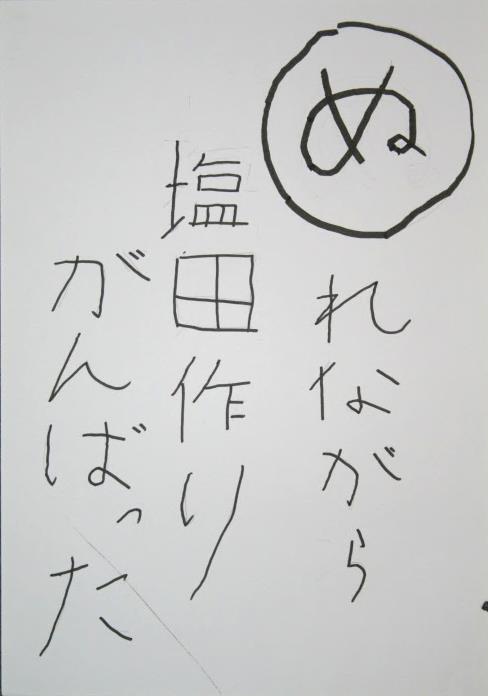 ぬれながら
塩田作り
がんばった